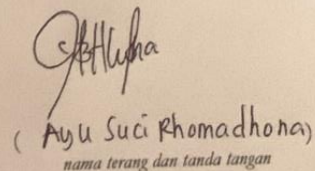 ( Ayu Suci Rhomadhona)
nama terang dan tanda tangan